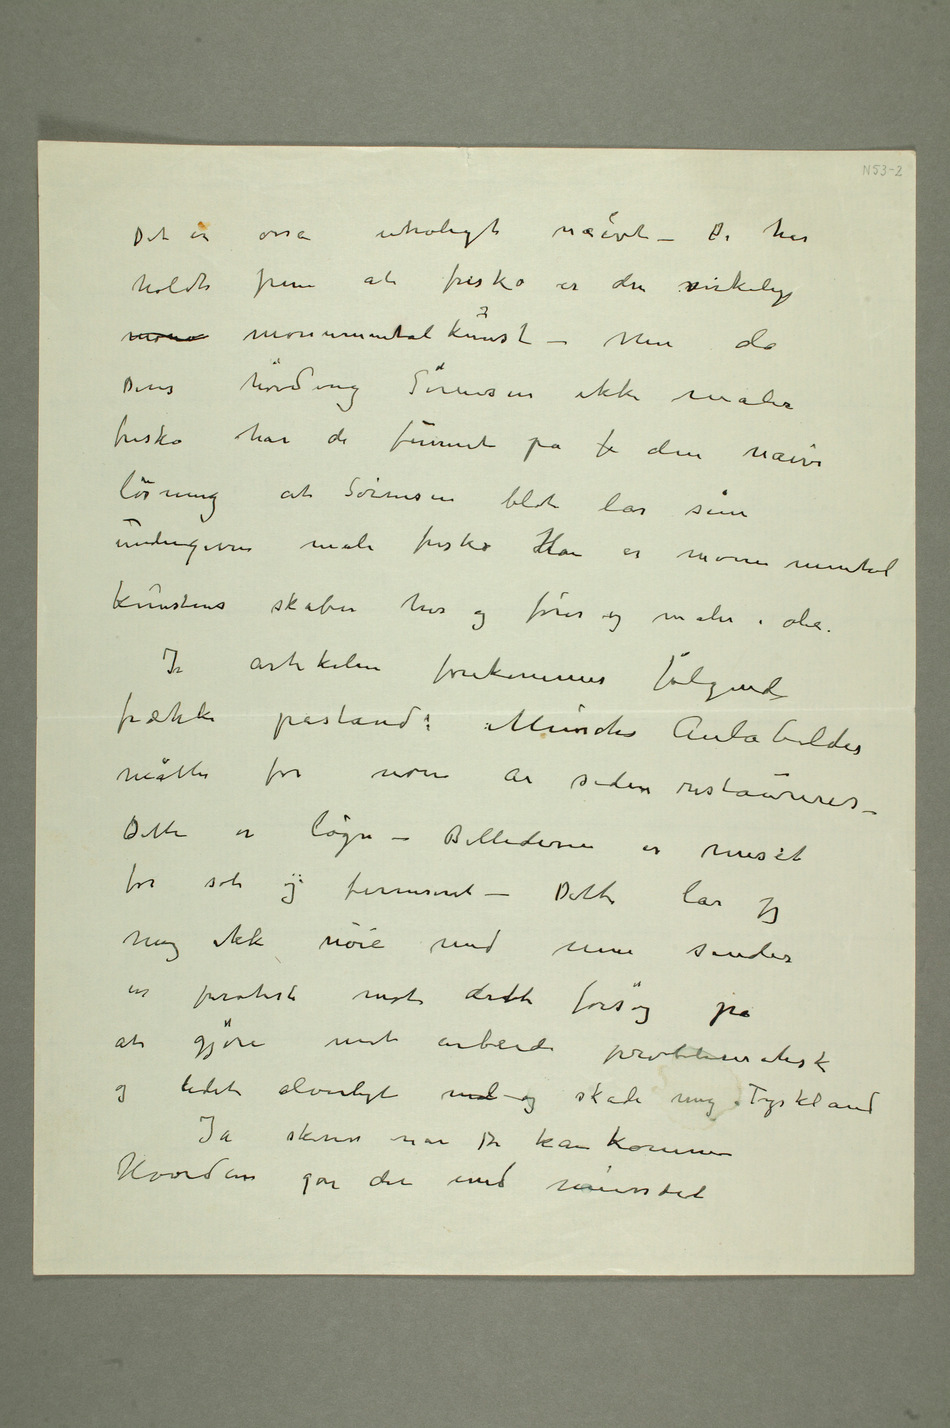 N53-2
Det er også utroligt naeivt – De har
holdt frem at fresko er den virkelig
monu monumentalkunst – Men da
Deres hövding Sörensen ikke maler
fresko har de funnet på fr den naive
lösning at Sörensen blot lar sine
undergivne male fresko Han er monumental
kunstens skaber her og förer og maler i olie.
I artikelen forekommer fölgende
frække påstand: Munchs Aulabilder
måtte for noen år siden restaureres –
Dette er lögn – Billederne er renset
for sot og fernisert – Dette lar jeg
mig ikke nöie med men sender
en protest mot dette forsög på
at gjöre mit arbeide problematisk
og lidet alvorligt med og skade mig i Tyskland
Ja skriv når De kan komme
Hvordan går det med museet